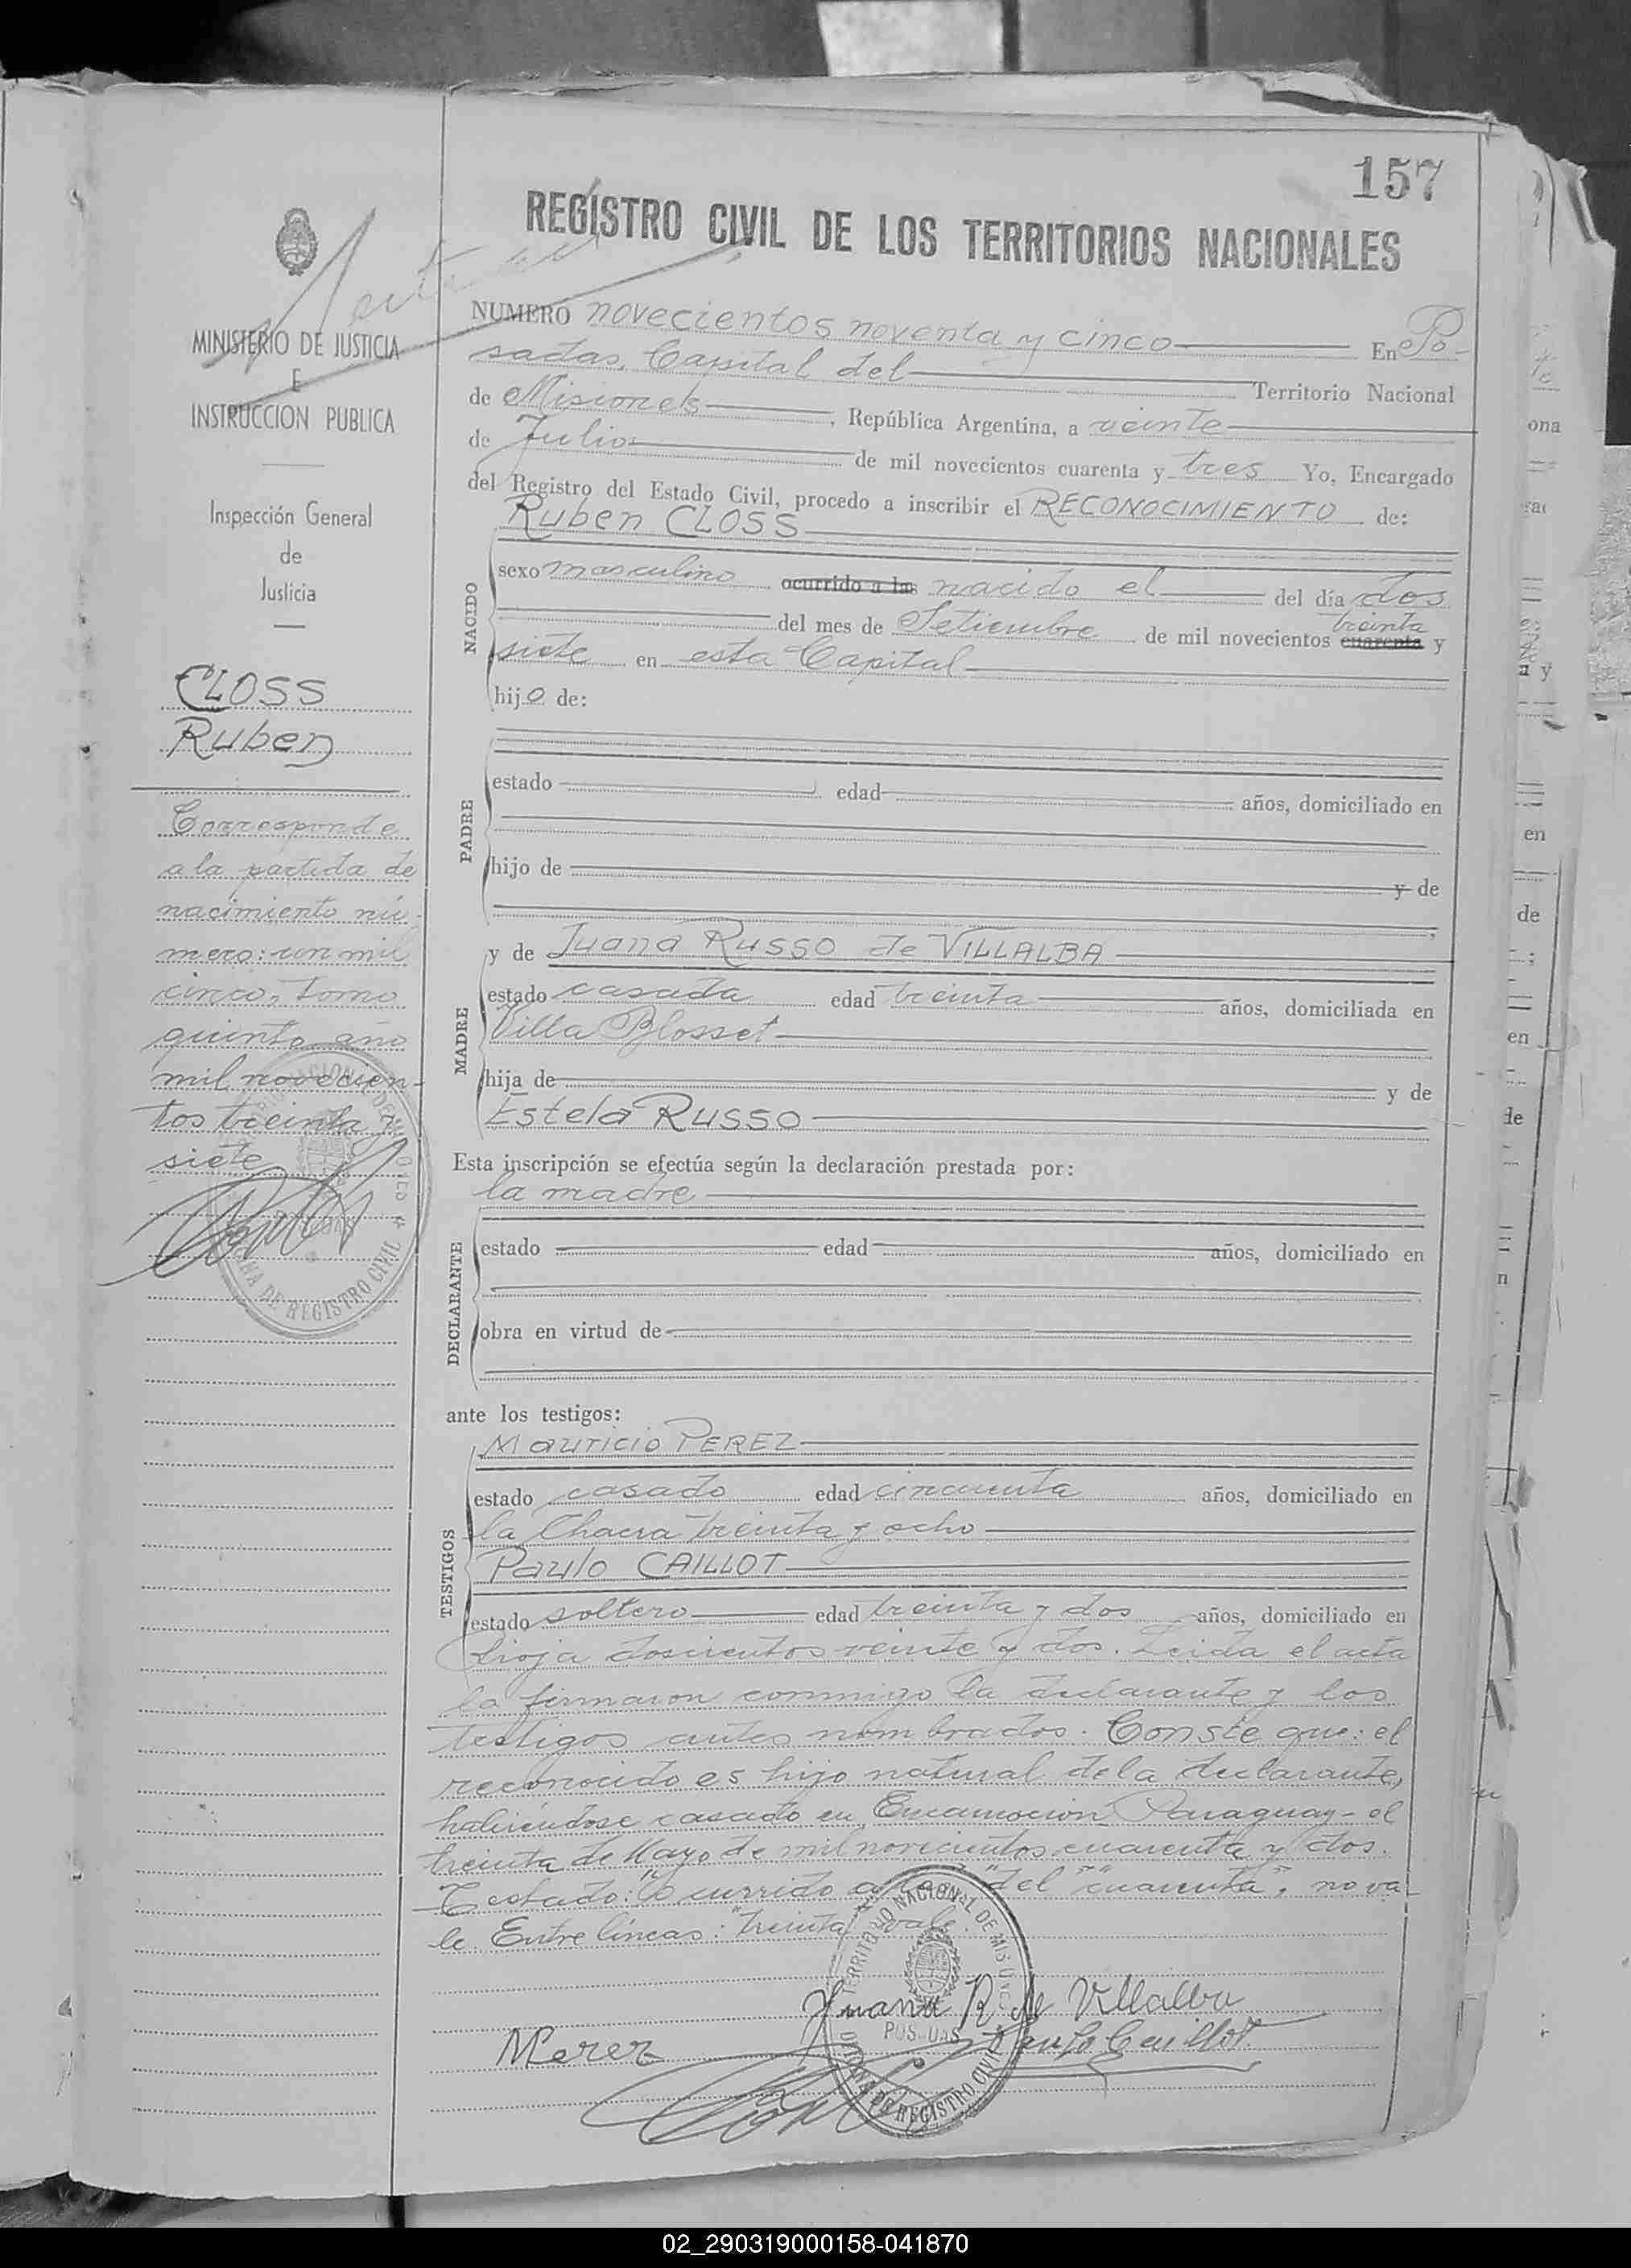 157
REGISTRO CIVIL DE LOS TERRITORIOS NACIONALES
MINISTERIO DE JUSTICIA
E
INSTRUCCION PUBLICA
Inspección General
de
Justicia
CLOSS
Ruben
Corresponde
a la partida de
nacimiento nú-
mero: un mil
cinco, Tomo
quinto año
mil novecien-
tos treinta y
siete
NUMERO novecientos noventa y cinco En Po-
sadas, Capital del Territorio Nacional
de Misiones, República Argentina, a veinte
de Julio de mil novecientos cuarenta y tres Yo, Encargado
del Registro del Estado Civil, procedo a inscribir el RECONOCIMIENTO de:
Ruben CLOSS
NACIDO
sexo masculino ocurrido a las nacido el del día dos
treinta
del mes de Setiembre de mil novecientos cuarenta y
siete en esta Capital
hijo de:
PADRE
estado edad años, domiciliado en
hijo de y de
MADRE
y de Juana RUSSO de VILLALBA
estado casada edad treinta años, domiciliada en
Villa Blosset
hija de y de
Estela RUSSO
Esta inscripción se efectúa según la declaración prestada por:
la madre
DECLARANTE
estado edad años, domiciliado en
obra en virtud de
ante los testigos:
TESTIGOS
Mauricio PEREZ
estado casado edad cincuenta años, domiciliado en
la Chacra treinta y ocho
Paulo CAILLOT
estado soltero edad treinta y dos años, domiciliado en
Rioja doscientos veinte y dos. Leida el acta
la firmaron conmigo la declarante y los
testigos antes nombrados. Conste que: el
reconocido es hijo natural de la declarante,
habiendose casado en Encarnacion Paraguay - el
treinta de Mayo de mil novecientos cuarenta y dos.
Testado: "ocurrido a las" "del" "cuarenta", no va-
le. Entre líneas: "treinta" vale
TERRITORIO NACIONAL DE MISIONES
POSADAS
OFICINA DE REGISTRO CIVIL
Juana R. de Villalba
MPerez
Paulo Caillot
02_290319000158-041870